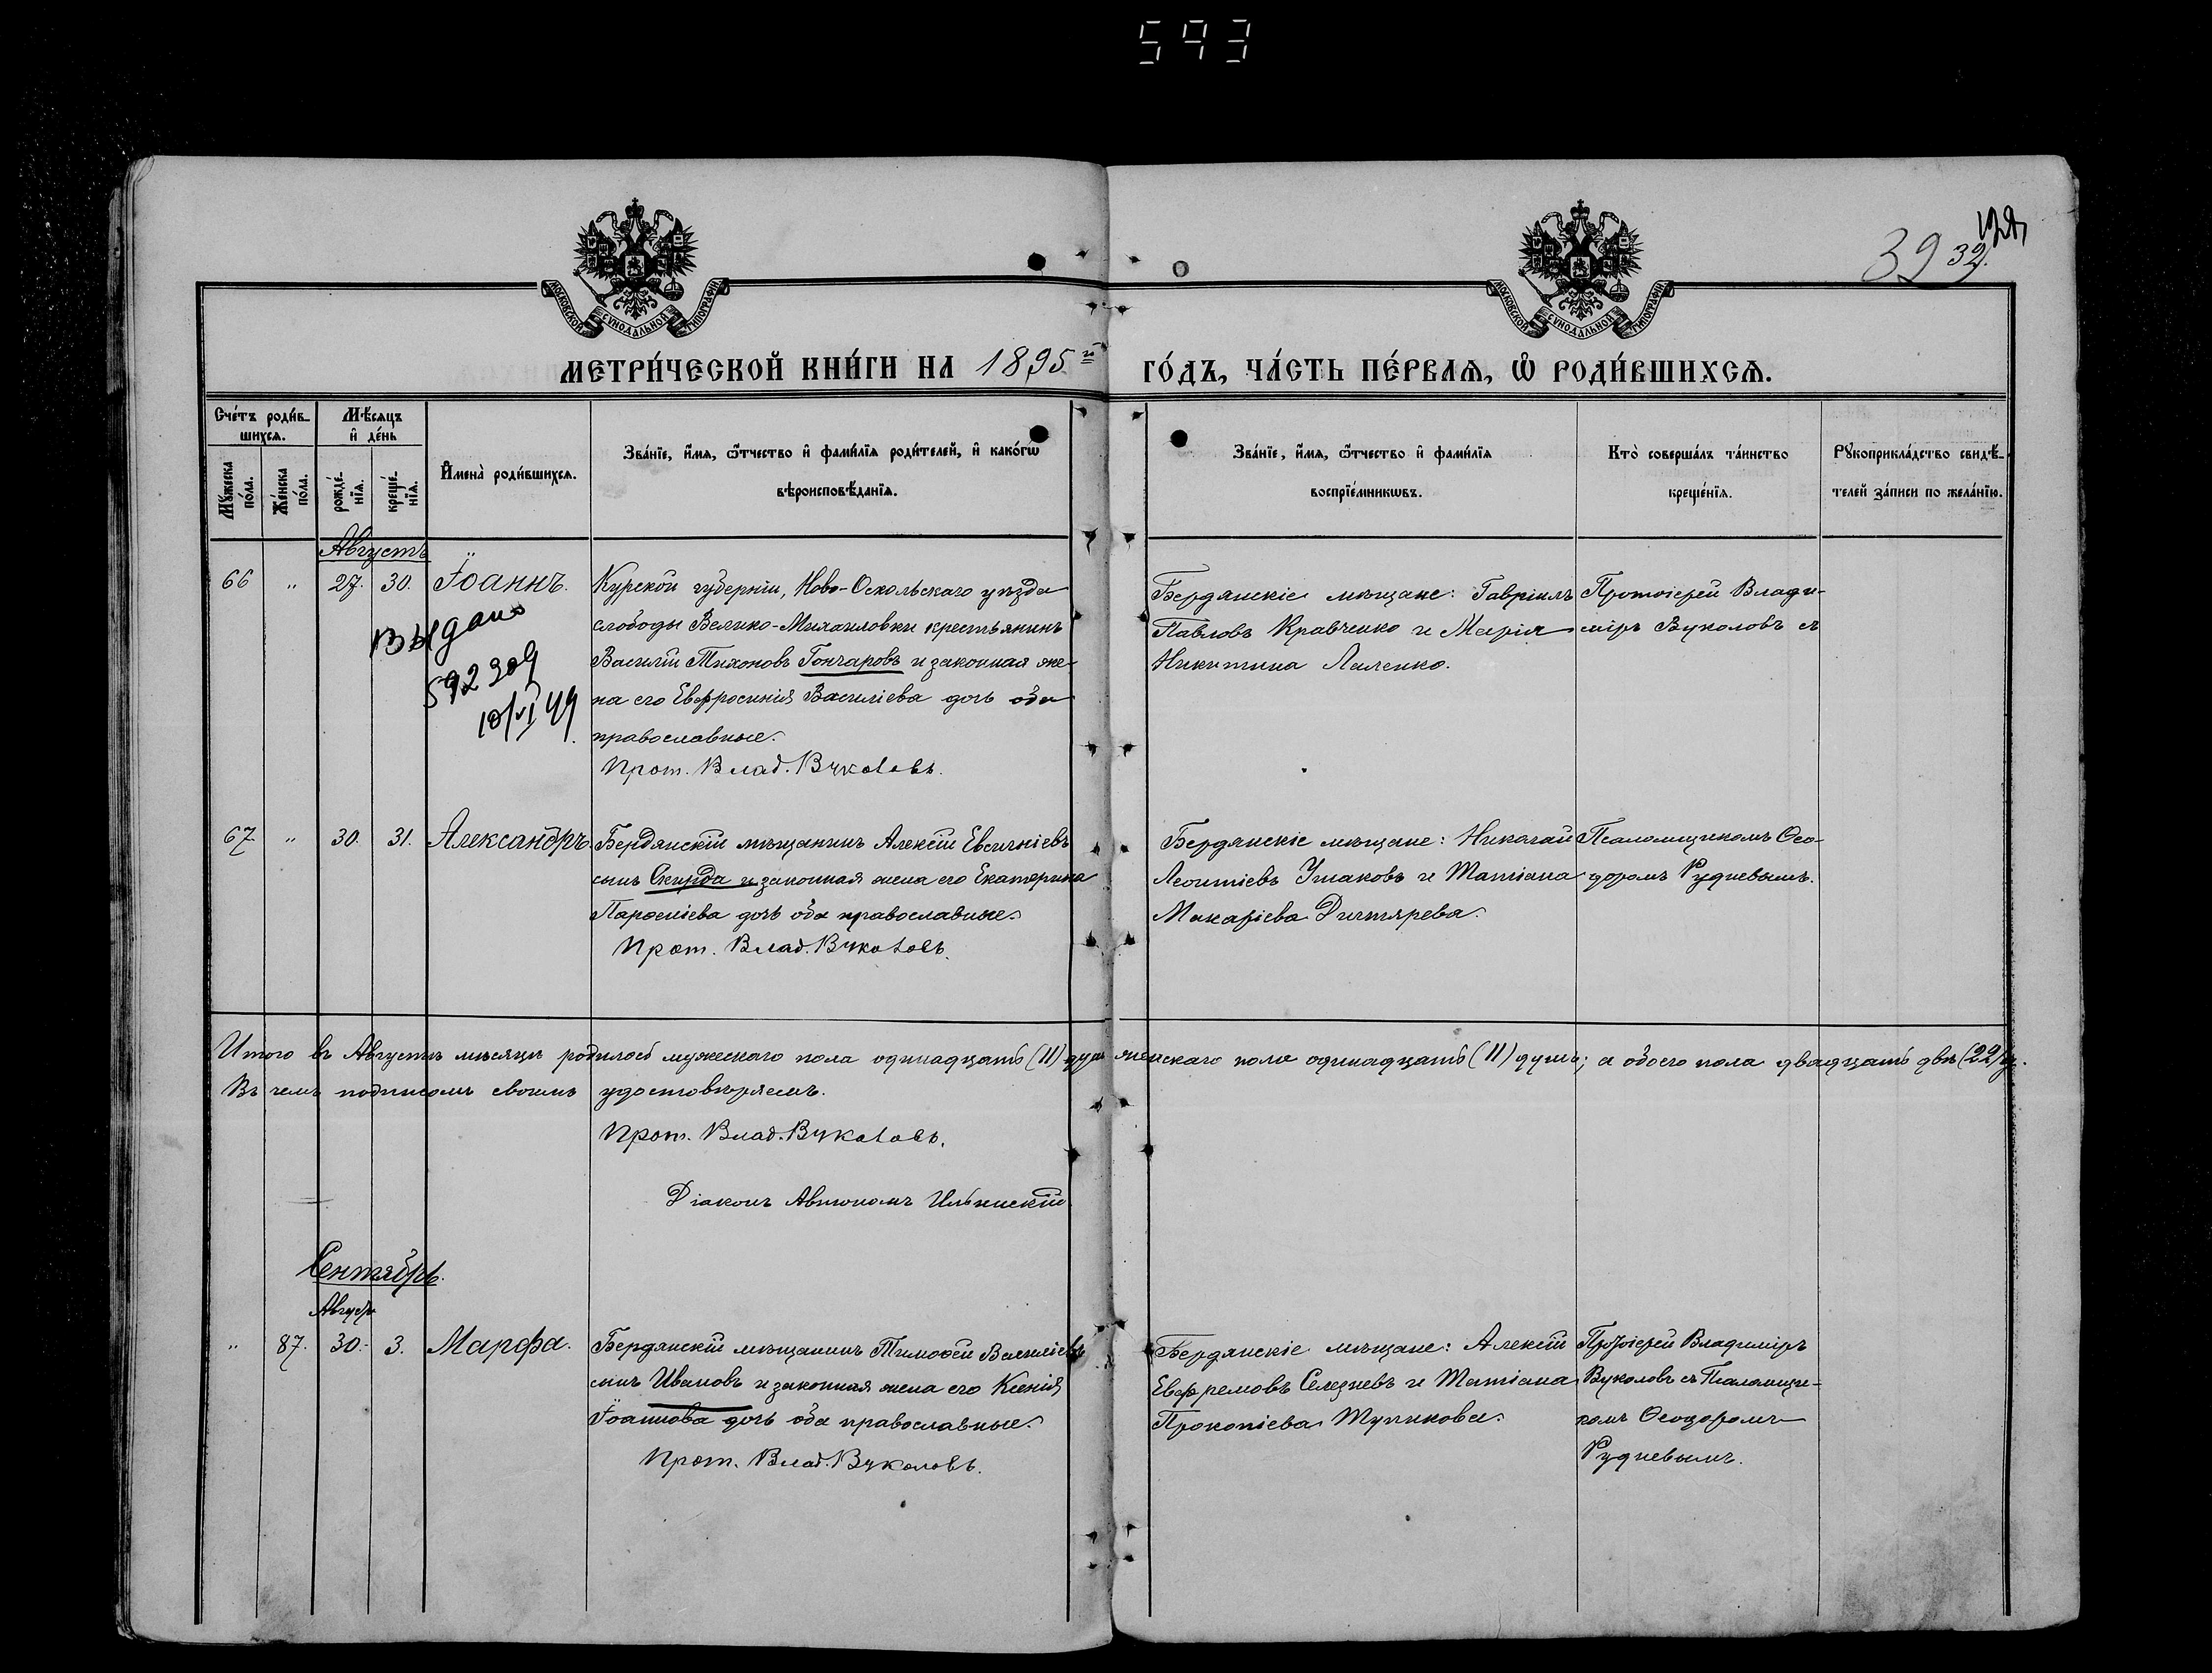 593
39 32.
МОСКОВСКОЙ СѴНОДАЛЬНОЙ ТИПОГРАФІИ
МОСКОВСКОЙ СѴНОДАЛЬНОЙ ТИПОГРАФІИ
МЕТРИ́ЧЕСКОЙ КНИ́ГИ НА 1895й ГО́ДЪ, ЧА́СТЬ ПЕ́РВАЯ, Ѡ РОДИ́ВШИХСЯ.
Сче́тъ роди́вшихся.
Мꙋжеска по́ла.
Же́нска по́ла.
Мѣ́сяцъ и҆ де́нь
рожде́нїя.
креще́нїя.
И҆мена̀ роди́вшихся.
Зва́нїе, и҆́мя, ѻ҆́тчество и҆ фами́лїя роди́телей, и҆ како́гѡ
вѣроисповѣ́данїя.
Зва́нїе, и҆́мя, ѻ҆́тчество и҆ фами́лїя
воспрїе́мникѡвъ.
Кто̀ соверша́лъ та́инство
креще́нїя.
Рꙋкоприкла́дство свидѣ́-
телей за́писи по жела́нїю.
Августъ
66 " 27. 30. Іоаннъ.
Курской губерніи, Ново-Оскольскаго уѣзда
слободы Велико-Михаиловки крестьянинъ
Василій Тихоновъ Гончаровъ и законная же-
на его Евфросинія Василіева дочь оба
православные.
Прот. Влад. Вуколовъ.
Выдано
592309
10/VI 49
Бердянскіе мѣщане: Гавріилъ
Павловъ Кравченко и Марія
Никитина Лаленко.
Протоіерей Влади-
міръ Вуколовъ съ
67 " 30. 31. Александръ.
Бердянскій мѣщанинъ Алексій Евсигніевъ
сынъ Скирда и законная жена его Екатерина
Парѳеніева дочь оба православные.
Прот. Влад. Вуколовъ.
Бердянскіе мѣщане: Николай
Леонтіевъ Ушаковъ и Татіана
Макаріева Дихтярева.
Псаломщикомъ Ѳео-
доромъ Рудневымъ.
Итого въ Августѣ мѣсяцѣ родилось мужескаго пола одинадцать (11) душъ женскаго пола одинадцать (11) душъ; а обоего пола двадцать двѣ (22) д.
Въ чемъ подписомъ своимъ удостовѣряемъ.
Прот. Влад. Вуколовъ.
Діаконъ Автономъ Ильинскій
Сентябрь.
Августъ
" 87. 30. 3. Марфа.
Бердянскій мѣщанинъ Тимоѳей Василіевъ
сынъ Ивановъ и законная жена его Ксенія
Іоаннова дочь оба православные.
Прот. Влад. Вуколовъ.
Бердянскіе мѣщане: Алексій
Ефремовъ Селезневъ и Татіана
Прокопіева Тупикова.
Протоіерей Владиміръ
Вуколовъ съ Псаломщи-
комъ Ѳеодоромъ
Рудневымъ.